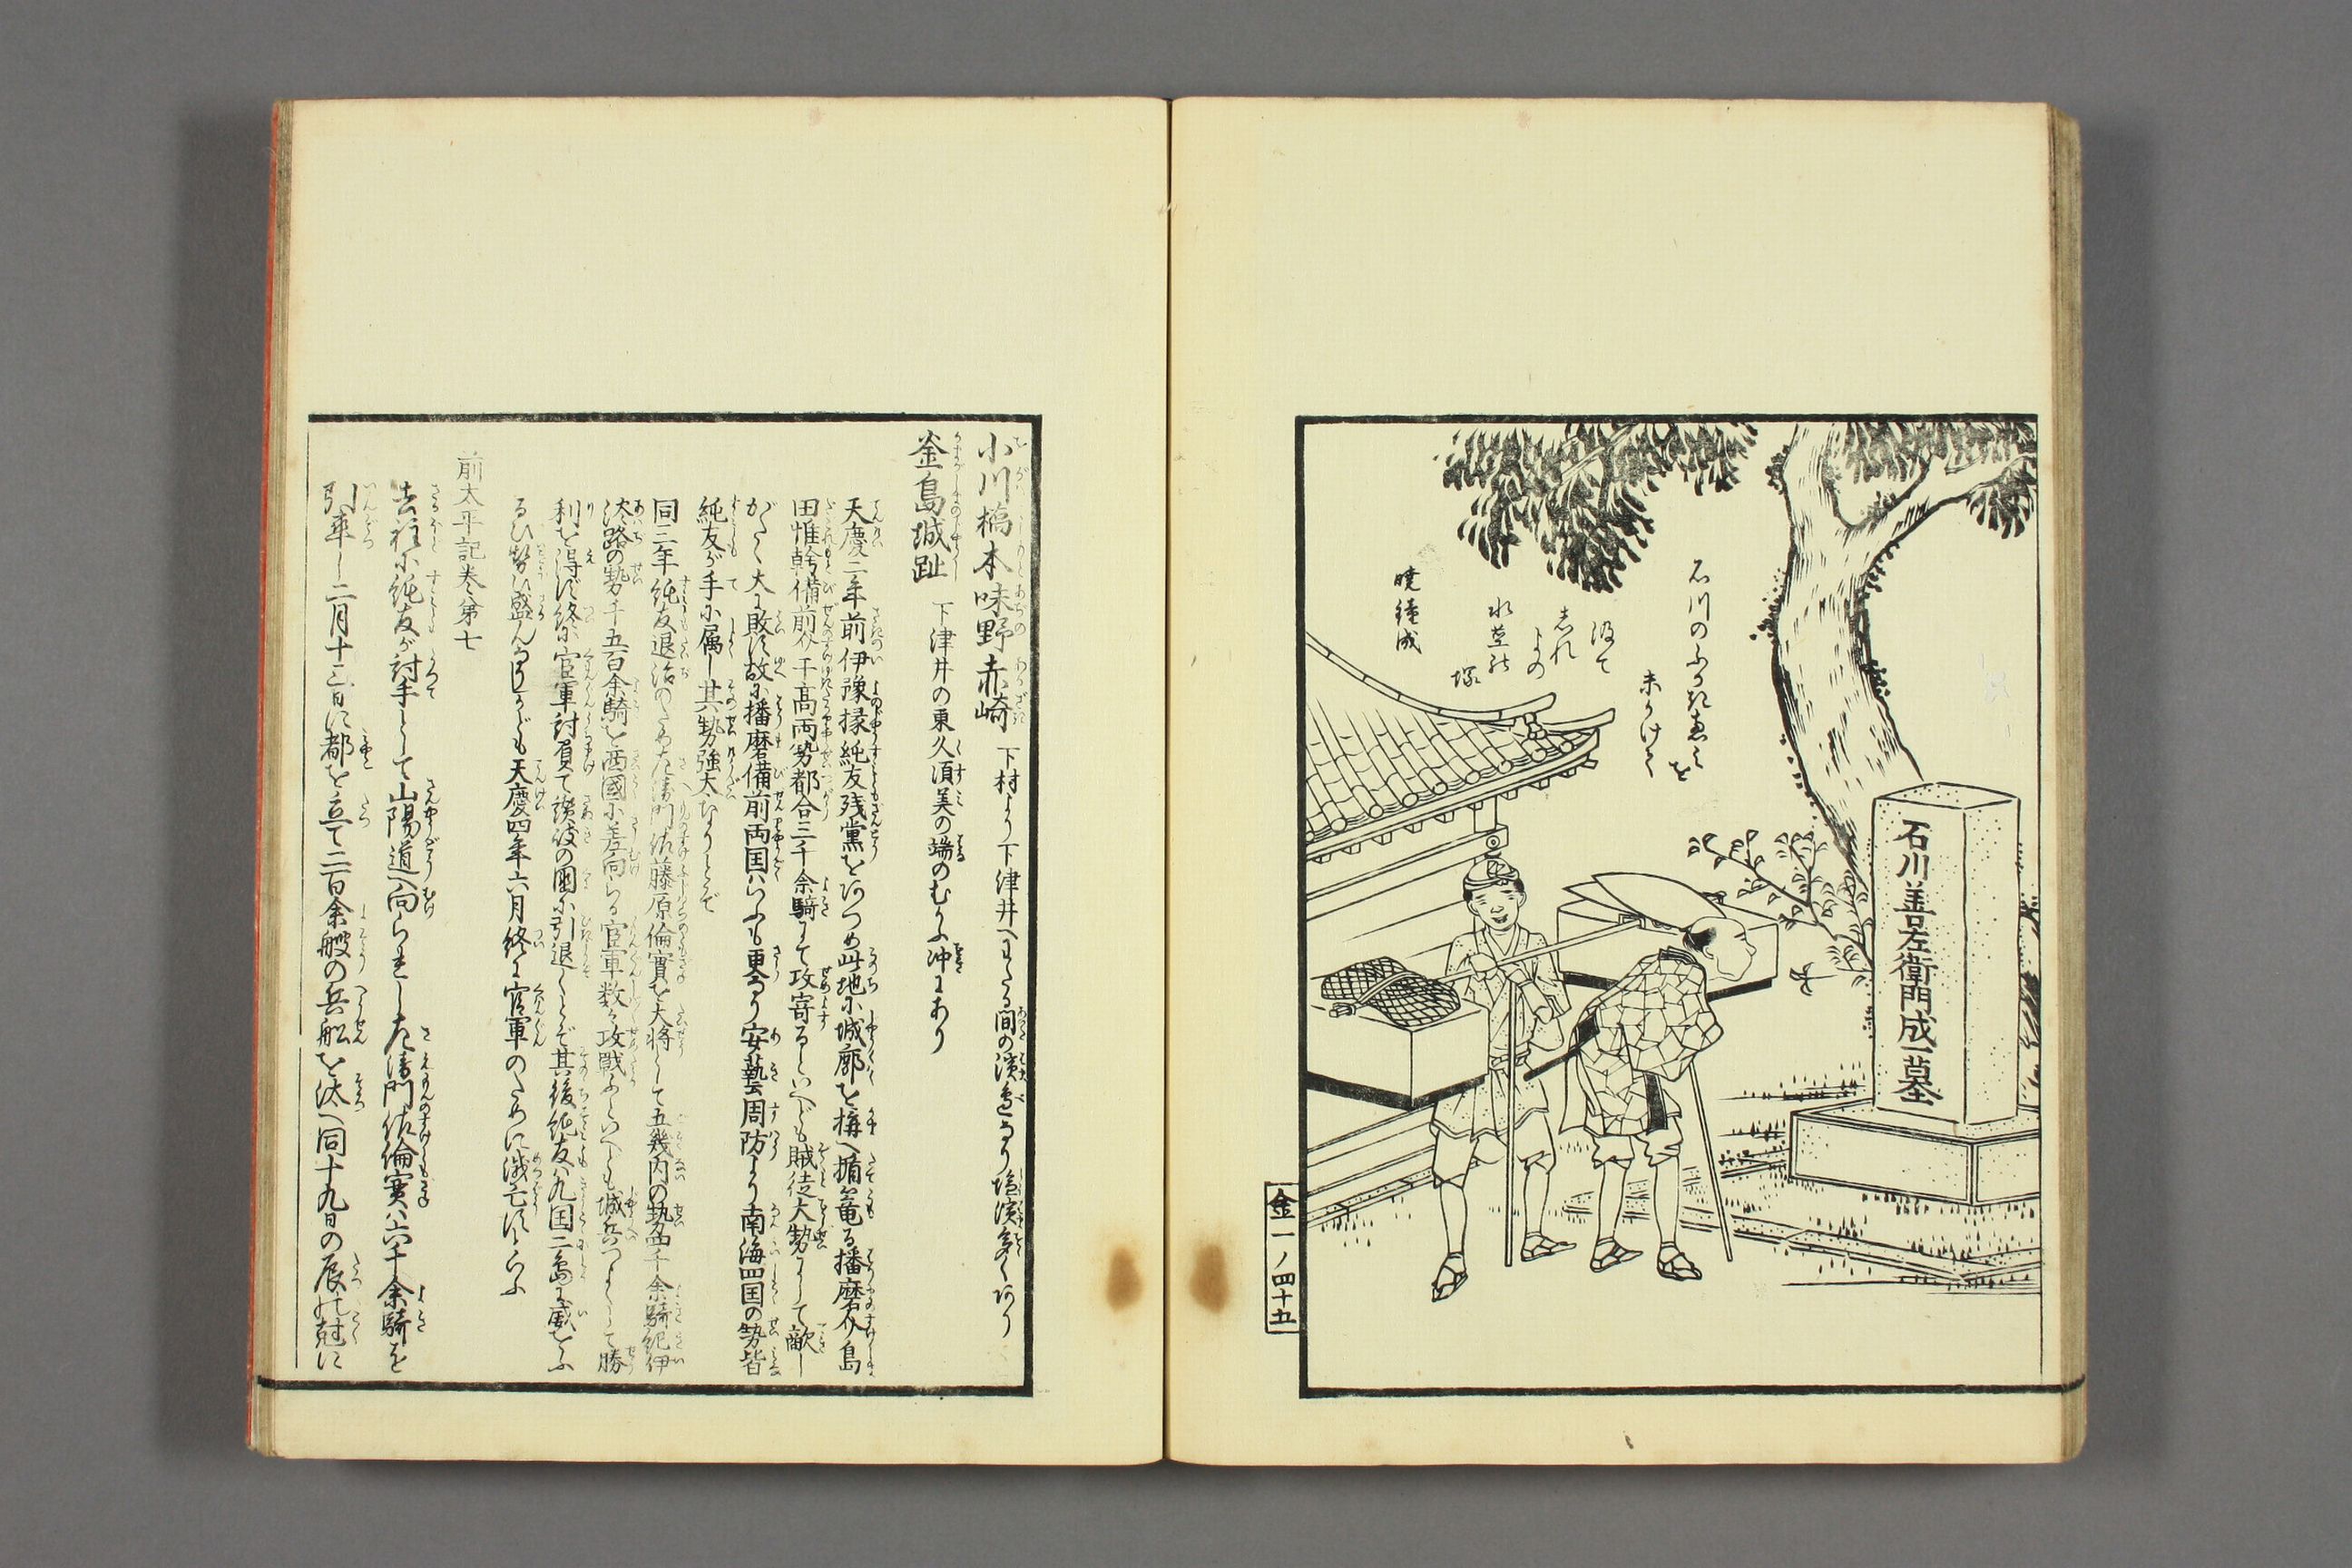 石川善左衛門成一墓
石川のふかき恵みを
未かけて
汲て
志れ
よの
水莖の
塚
暁鐘成
金一ノ四十五
小川橋本味野赤崎 下村より下津井へいたる間の濱邊なり塩濱多くあり
釜島城趾 下津井の東久須美の端のむかふ沖にあり
天慶二年前伊豫掾純友残黨をあつめ此地に城廓を構へ楯篭る播磨介島
田惟幹備前介于高両勢都合三千余騎にて攻寄るといへども賊徒大勢にして敵し
がたく大に敗す故に播磨備前両国はいふも更なり安藝周防より南海四国の勢皆
純友が手に属し其勢強大なりしとぞ
同三年純友退治のため左衛門佐藤原倫實を大将として五幾内の勢四千余騎紀伊
淡路の勢千五百余騎を西國に差向らる官軍数々攻戦ふといへども城兵つよくして勝
利を得ず終に官軍討負て讃岐の國に引退しとぞ其後純友九国二島に威をふ
るひ勢ひ盛んなりしかども天慶四年六月終に官軍のために滅亡すといふ
前太平記巻第七
去程に純友が討手として山陽道へ向られし左衛門佐倫實は六千余騎を
引率し二月十三日に都を立て二百余艘の兵舩を汰へ同十九日の辰の尅に